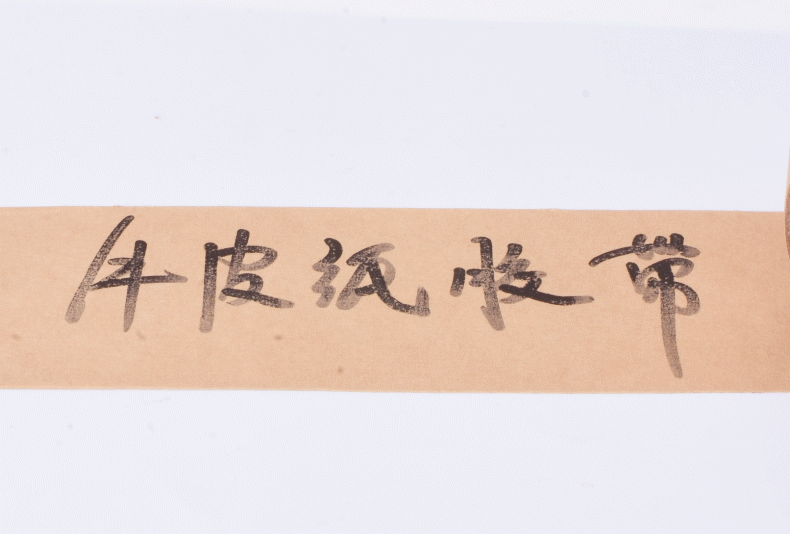 牛皮纸胶带